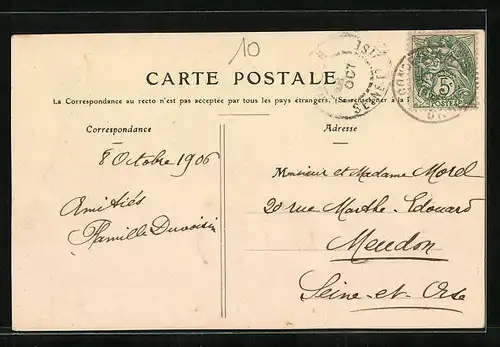 10
CARTE POSTALE
La Correspondance au recto n'est pas acceptée par tous les pays étrangers. (Se renseigner à la
Correspondance
Adresse
8 Octobre 1906
Amitiés
Famille Duvoisin
Monsieur et Madame Morel
20 rue Marthe-Edouard
Meudon
Seine-et-Oise
OCT
SEINE-ET-OISE
5